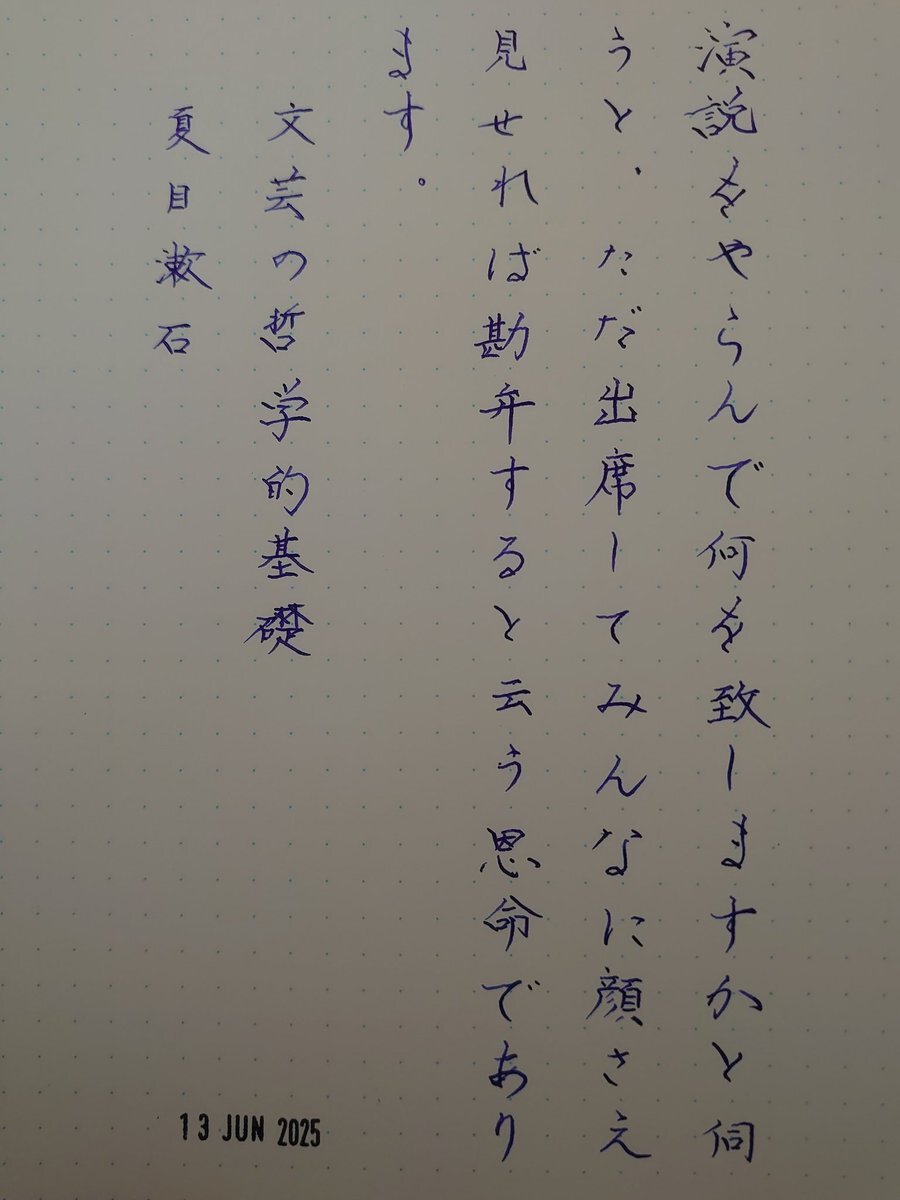 演説をやらんで何を致しますかと伺
うと、ただ出席してみんなに顔さえ
見せれば勘弁すると云う恩命であり
ます。
文芸の哲学的基礎
夏目漱石
13 JUN 2025